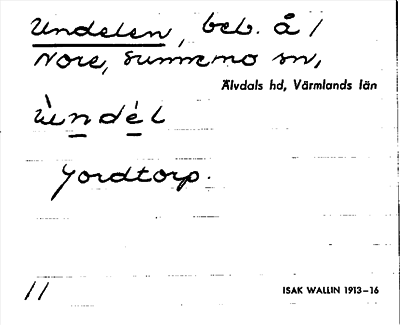 Undelen, beb. å 1
Nore, Sunnemo sn,
Älvdals hd, Värmlands län
ùndél
Jordtorp.
11
ISAK WALLIN 1913-16